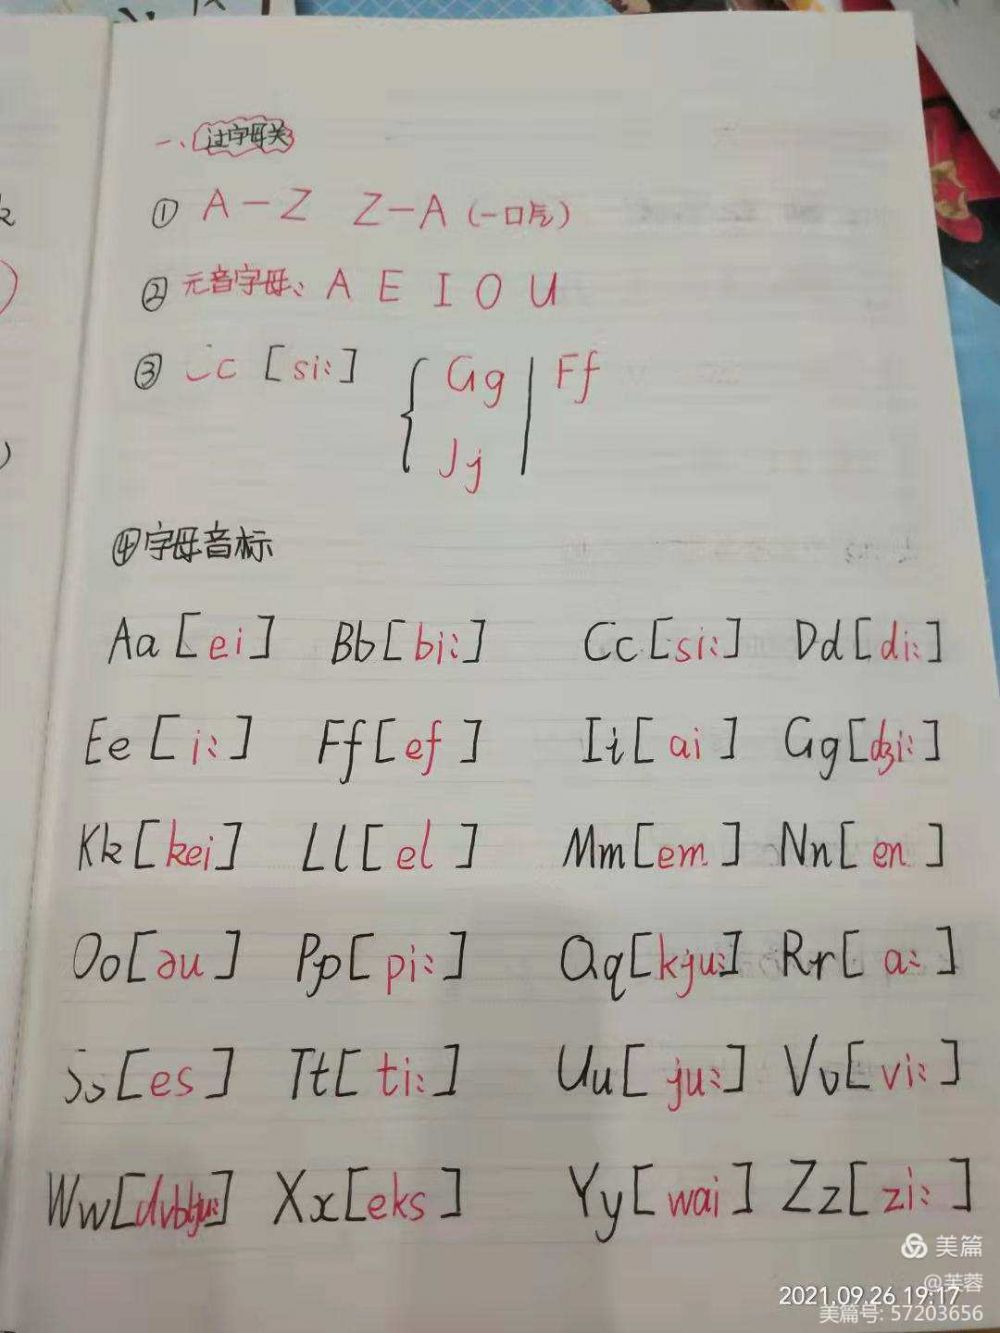 一、过字母关
① A-Z Z-A (一口气)
② 元音字母: A E I O U
③ Cc [si:] { Gg | Ff
Jj
④字母音标
Aa [ei] Bb [bi:] Cc [si:] Dd [di:]
Ee [i:] Ff [ef] Ii [ai] Gg [dʒi:]
Kk [kei] Ll [el] Mm [em] Nn [en]
Oo [əu] Pp [pi:] Qq [kju:] Rr [a:]
Ss [es] Tt [ti:] Uu [ju:] Vv [vi:]
Ww Xx [eks] Yy [wai] Zz [zi:]
美篇
@芙蓉
2021.09.26 19:17
美篇号: 57203656